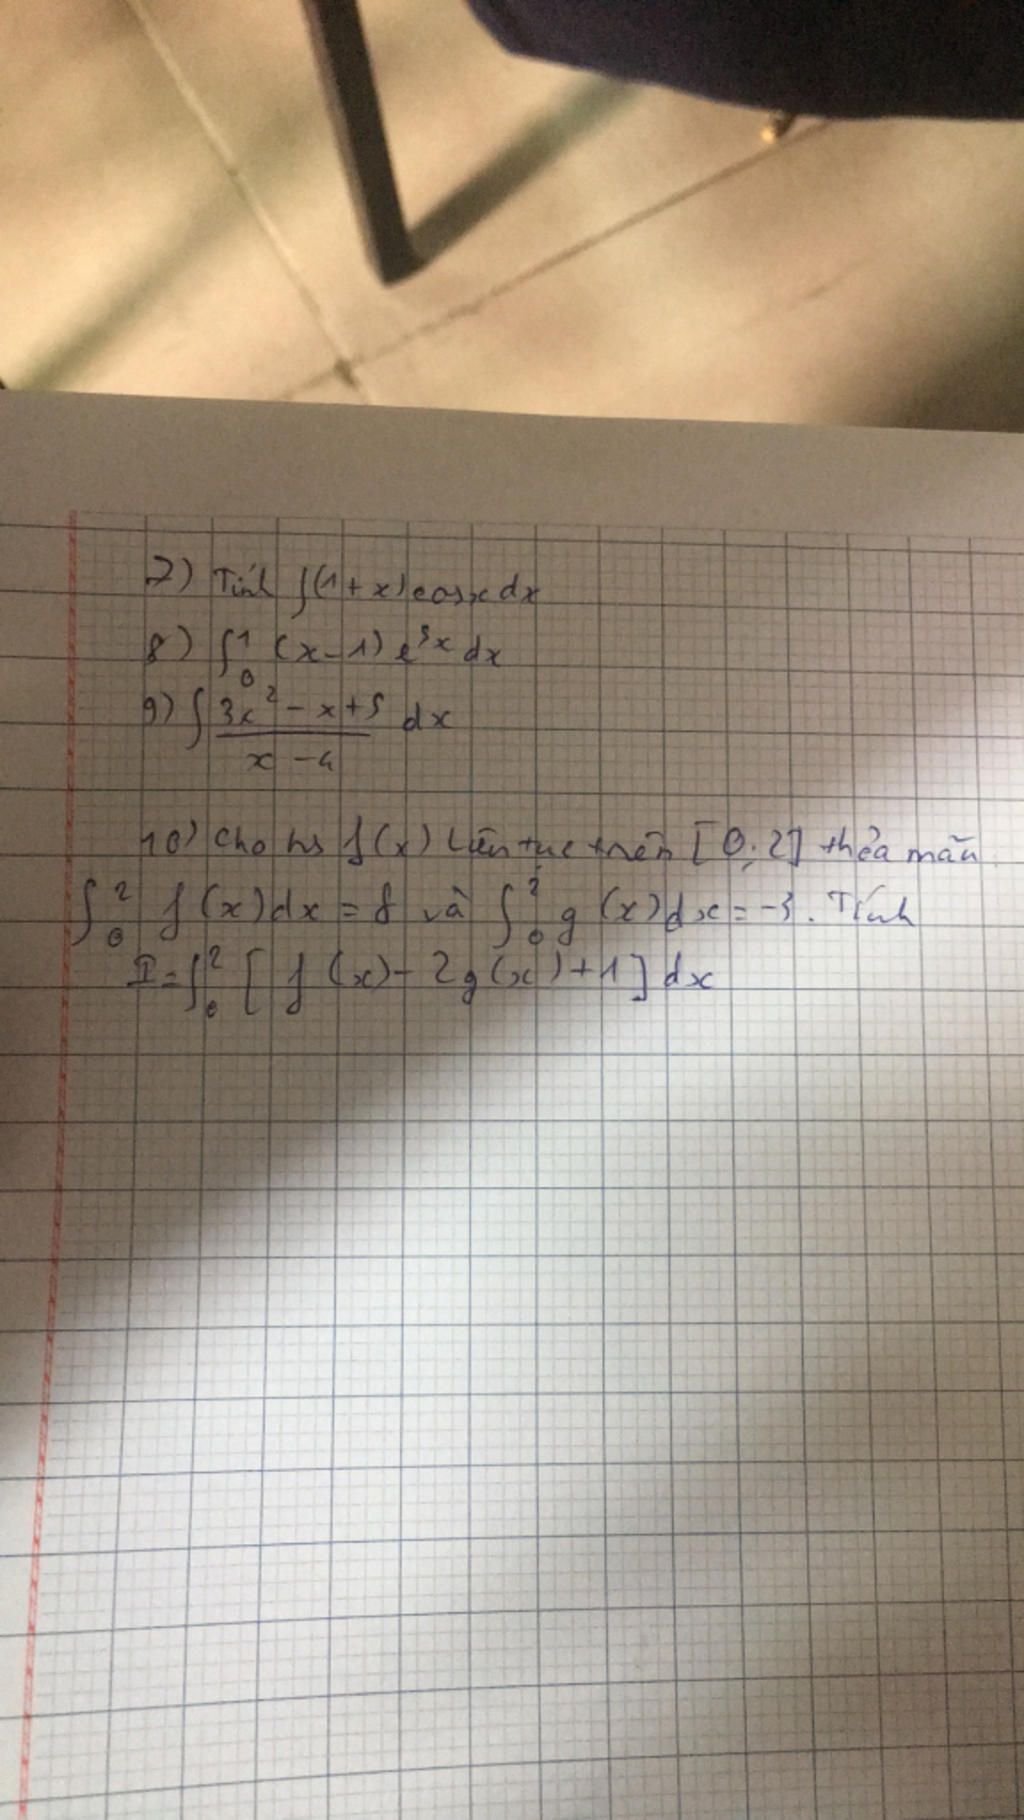 7) Tính ∫(1+x)cosx dx
8) ∫₀¹ (x-1) e³ˣ dx
9) ∫ (3x² - x + 5)/(x - 4) dx
10) Cho hs f(x) liên tục trên [0;2] thỏa mãn
∫₀² f(x)dx = 8 và ∫₀² g(x)dx = -3. Tính
I = ∫₀² [f(x) - 2g(x) + 1] dx